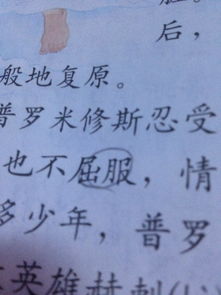 后，
般地复原。
普罗米修斯忍受
也不屈服，情
多少年，普罗
英雄赫